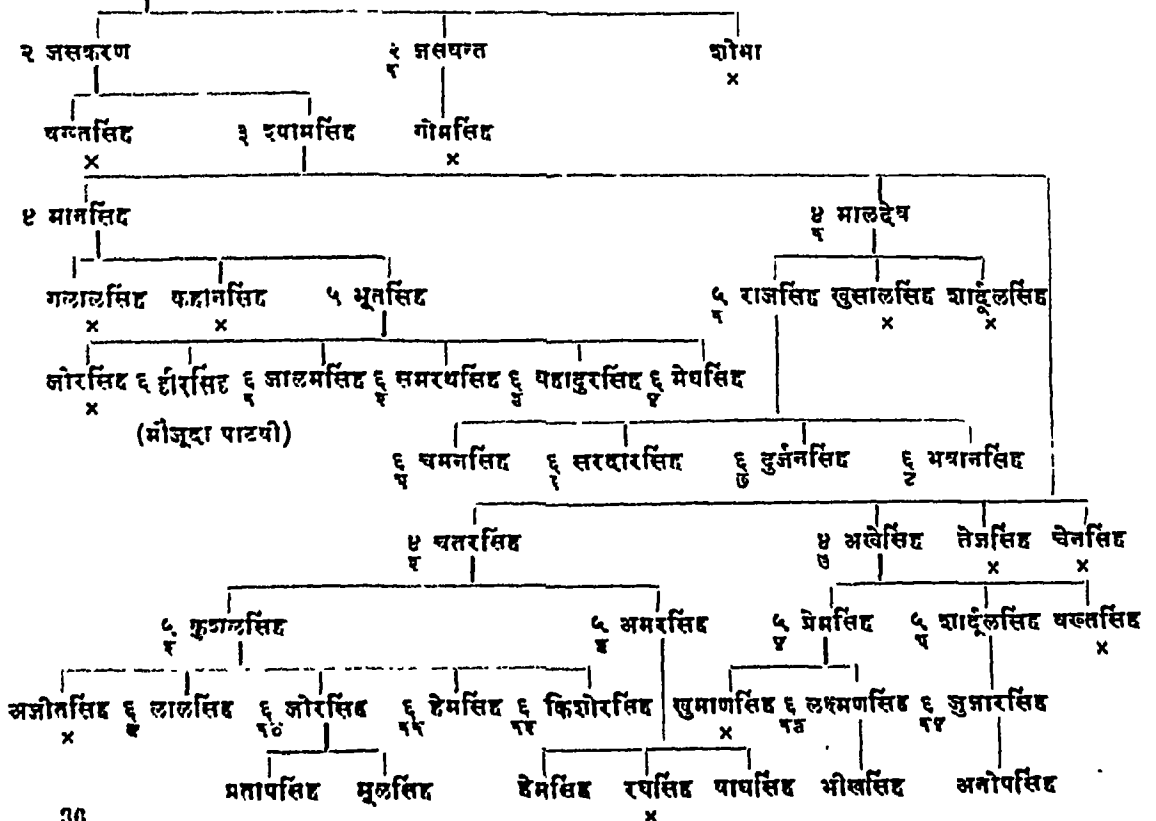 २ जसकरण २/१ जसवन्त शोभा
× 
वख्तसिंह ३ श्यामसिंह गोमसिंह
× ×
४ मानसिंह ४/१ मालदेव
गलालसिंह कहानसिंह ५ भूतसिंह ५/१ राजसिंह खुसालसिंह शार्दूलसिंह
× × × ×
जोरसिंह ६ हीरसिंह ६/१ जालमसिंह ६/२ समरथसिंह ६/३ बहादुरसिंह ६/४ मेघसिंह
×
(मौजूदा पाटवी)
६/५ चमनसिंह ६/६ सरदारसिंह ६/७ दुर्जनसिंह ६/८ भवानसिंह
४/२ चतरसिंह ४/३ अखेसिंह तेजसिंह चेनसिंह
× ×
५/२ कुशलसिंह ५/३ अमरसिंह ५/४ प्रेमसिंह ५/५ शार्दूलसिंह वख्तसिंह
×
अजीतसिंह ६/९ लालसिंह ६/१० जोरसिंह ६/११ हेमसिंह ६/१२ किशोरसिंह खुमाणसिंह ६/१३ लक्ष्मणसिंह ६/१४ जुझारसिंह
× ×
प्रतापसिंह मूलसिंह हेमसिंह रघसिंह वाघसिंह भीखसिंह अनोपसिंह
×